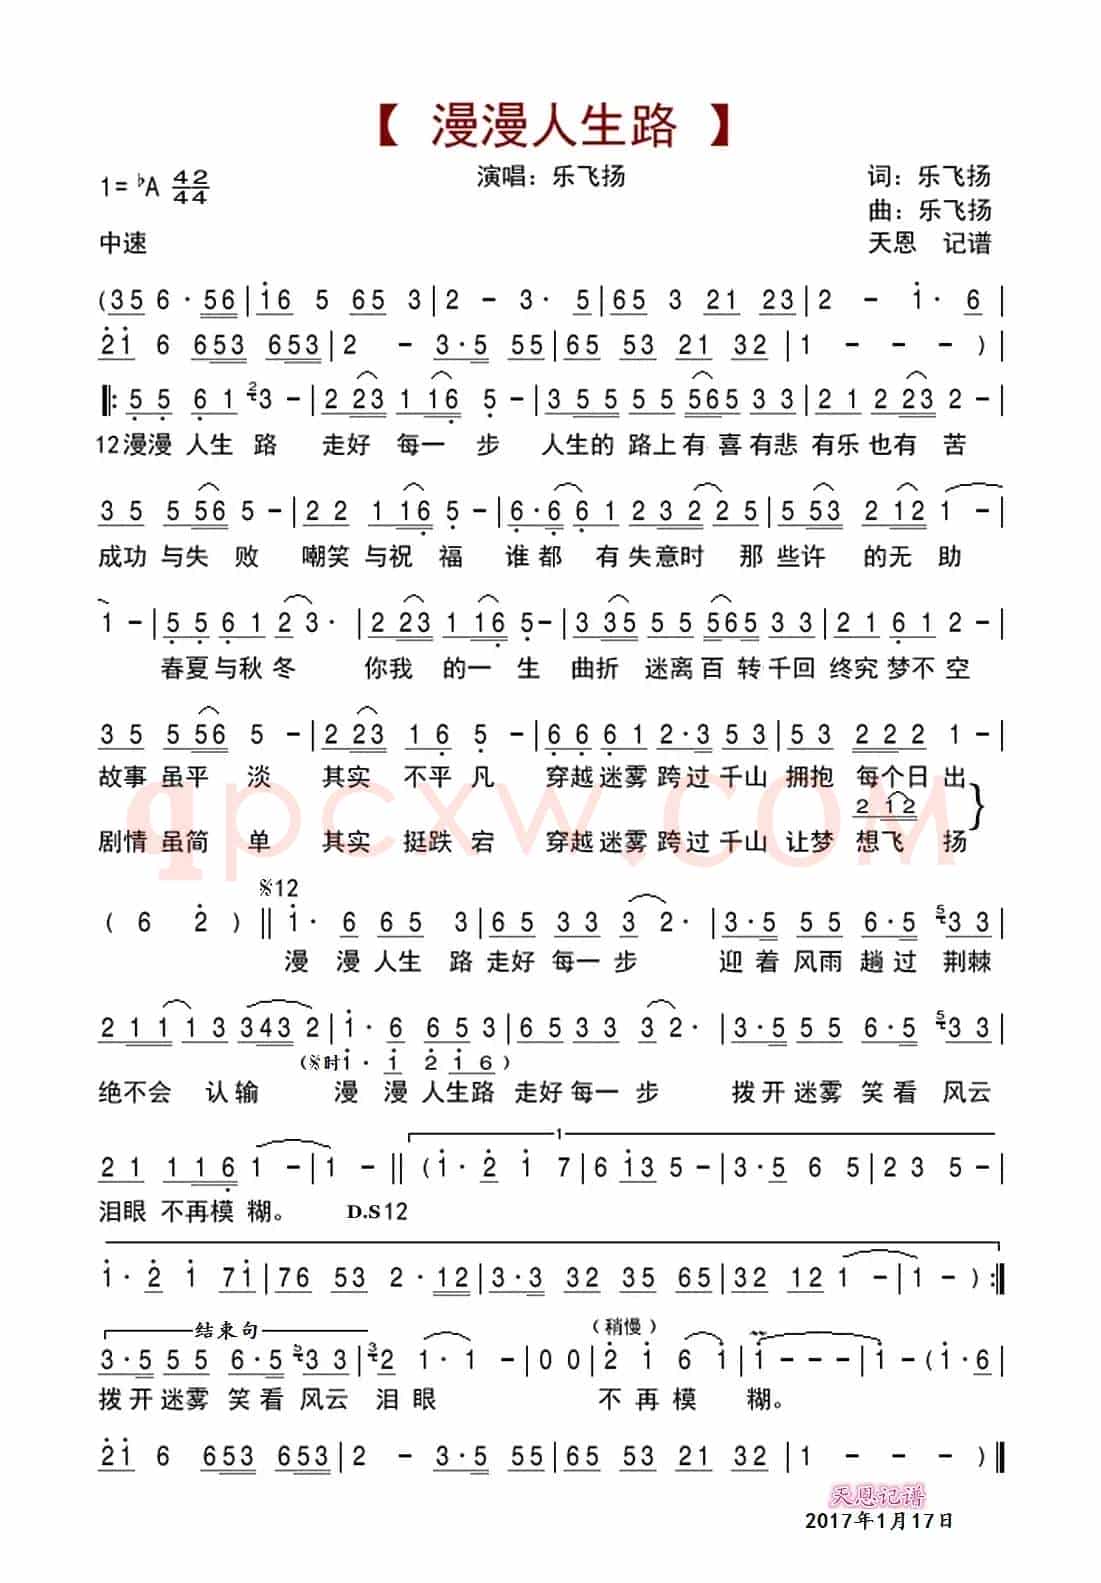 【 漫漫人生路 】
演唱：乐飞扬
词：乐飞扬
1= ♭A 42/44
曲：乐飞扬
中速
天恩 记谱
(35 6·56|i6 5 65 3|2 - 3· 5|65 3 21 23|2 - i· 6|
2i 6 653 653|2 - 3·5 55|65 53 21 32|1 - - -)|
‖:55 61 3-|2 23 1 16 5-|35 55 5565 33|21 2 23 2-|
12漫漫 人生 路 走好 每一 步 人生的 路上有 喜有悲 有乐也有 苦
35 556 5-|22 1 16 5-|6·6 61 232 225|5 53 2 12 1-|
成功 与失 败 嘲笑 与祝 福 谁都 有失意时 那些许 的无 助
1-|5561 23·|2 23 1 16 5-|3 35 55 565 33|21 61 2-|
春夏与秋冬 你我 的一 生 曲折 迷离百 转千回 终究梦不空
35 556 5-|2 23 16 5-|6661 2·353|53 222 1-|
故事 虽平 淡 其实 不平 凡 穿越迷雾 跨过千山 拥抱 每个日 出
2 12
剧情 虽简 单 其实 挺跌 宕 穿越迷雾 跨过千山 让梦 想飞 扬
𝄋12
(6 2)‖i· 6 65 3|65 33 3 2·|3·5 55 6·5 33|
漫 漫人生 路 走好每一步 迎着风雨 趟过 荆棘
2 11 13 343 2|i· 6 653|6533 3 2·|3·5 55 6·5 33|
(𝄋时i· i 2 i 6)
绝不会 认输 漫 漫人生路 走好每一步 拨开迷雾 笑看 风云
1
21 116 1-|1-‖(i· 2 i 7|6 i35-|3·5 6 5|23 5-|
泪眼 不再模 糊。 D.S12
i· 2 i 7i|76 53 2·12|3·3 32 35 65|32 12 1-|1-):‖
结束句
(稍慢)
3·5 55 6·5 33|2 1·1-|00|2 i 6 i|i---|i-(i·6|
拨开迷雾 笑看 风云 泪眼 不再模 糊。
2i 6 653 653|2 - 3·5 55|65 53 21 32|1 - -)‖
qpcxw.COM
天恩记谱
2017年1月17日